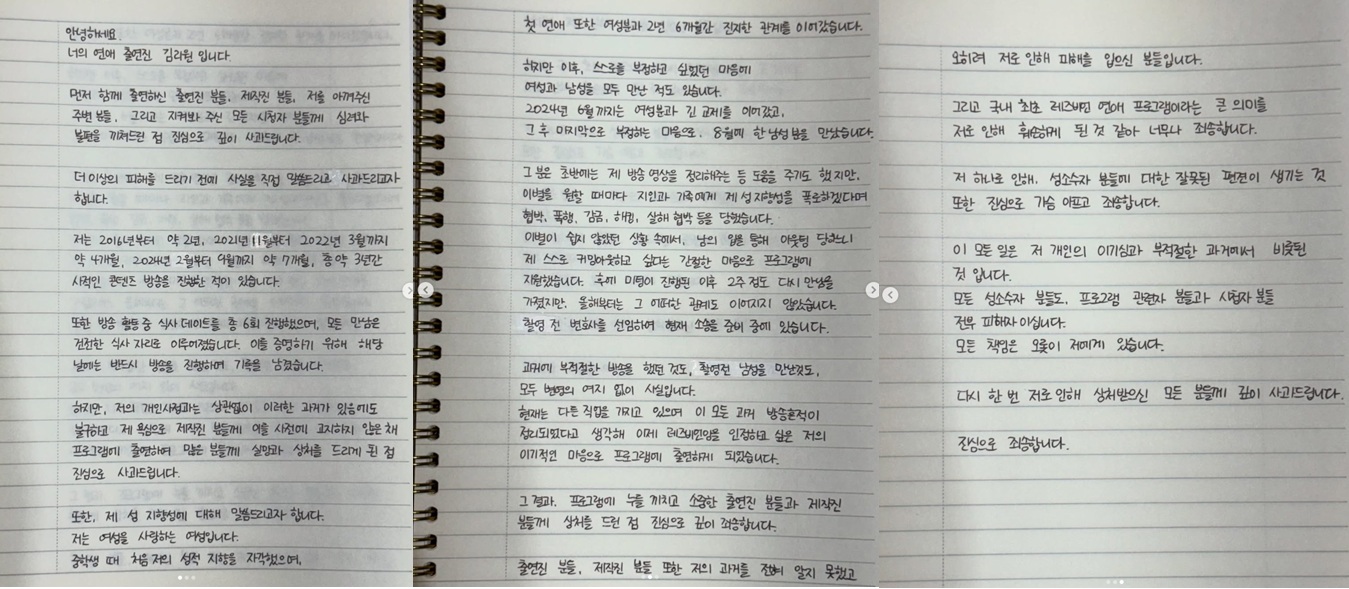 안녕하세요.
너의 연애 출연진 김리원 입니다.
먼저 함께 출연하신 출연진 분들, 제작진 분들, 저를 아껴주신
주변 분들, 그리고 지켜봐 주신 모든 시청자 분들께 심려와
불편을 끼쳐드린 점 진심으로 깊이 사과드립니다.
더 이상의 피해를 드리기 전에 사실을 직접 말씀드리고 사과드리고자
합니다.
저는 2016년부터 약 2년, 2021년 11월부터 2022년 3월까지
약 4개월, 2024년 2월부터 9월까지 약 7개월, 총 약 3년간
사적인 콘텐츠 방송을 진행한 적이 있습니다.
또한 방송 활동 중 식사 데이트를 총 6회 진행했으며, 모든 만남은
건전한 식사 자리로 이루어졌습니다. 이를 증명하기 위해 해당
날에는 반드시 방송을 진행하며 기록을 남겼습니다.
하지만, 저의 개인사정과는 상관없이 이러한 과거가 있음에도
불구하고 제 욕심으로 제작진 분들께 이를 사전에 고지하지 않은 채
프로그램에 출연하여 많은 분들께 실망과 상처를 드리게 된 점
진심으로 사과드립니다.
또한, 제 성 지향성에 대해 말씀드리고자 합니다.
저는 여성을 사랑하는 여성입니다.
중학생 때 처음 저의 성적 지향을 자각했으며,
첫 연애 또한 여성분과 2년 6개월간 진지한 관계를 이어갔습니다.
하지만 이후, 스스로를 부정하고 싶었던 마음에
여성과 남성을 모두 만난 적도 있습니다.
2024년 6월까지는 여성분과 긴 교제를 이어갔고,
그 후 마지막으로 부정하는 마음으로, 8월에 한 남성 분을 만났습니다.
그 분은 초반에는 제 방송 영상을 정리해주는 등 도움을 주기도 했지만,
이별을 원할 때마다 지인과 가족에게 제 성 지향성을 폭로하겠다며
협박, 폭행, 감금, 해킹, 살해 협박 등을 당했습니다.
이별이 쉽지 않았던 상황 속에서, 남의 입을 통해 아웃팅 당하느니
제 스스로 커밍아웃하고 싶다는 간절한 마음으로 프로그램에
지원했습니다. 후에 미팅이 진행된 이후 2주 정도 다시 만남을
가졌지만, 올해부터는 그 어떠한 관계도 이어지지 않았습니다.
촬영 전 변호사를 선임하여 현재 소송을 준비 중에 있습니다.
과거에 부적절한 방송을 했던 것도, 촬영전 남성을 만난것도,
모두 변명의 여지 없이 사실입니다.
현재는 다른 직업을 가지고 있으며 이 모든 과거 방송흔적이
정리되었다고 생각해 이제 레즈비언임을 인정하고 싶은 저의
이기적인 마음으로 프로그램에 출연하게 되었습니다.
그 결과, 프로그램에 누를 끼치고 소중한 출연진 분들과 제작진
분들께 상처를 드린 점 진심으로 깊이 죄송합니다.
출연진 분들, 제작진 분들 또한 저의 과거를 전혀 알지 못했고
오히려 저로 인해 피해를 입으신 분들입니다.
그리고 국내 최초 레즈비언 연애 프로그램이라는 큰 의미를
저로 인해 훼손하게 된 것 같아 너무나 죄송합니다.
저 하나로 인해, 성소수자 분들에 대한 잘못된 편견이 생기는 것
또한 진심으로 가슴 아프고 죄송합니다.
이 모든 일은 저 개인의 이기심과 부적절한 과거에서 비롯된
것 입니다.
모든 성소수자 분들도, 프로그램 관련자 분들과 시청자 분들
전부 피해자 이십니다.
모든 책임은 오롯이 저에게 있습니다.
다시 한 번 저로 인해 상처받으신 모든 분들께 깊이 사과드립니다.
진심으로 죄송합니다.